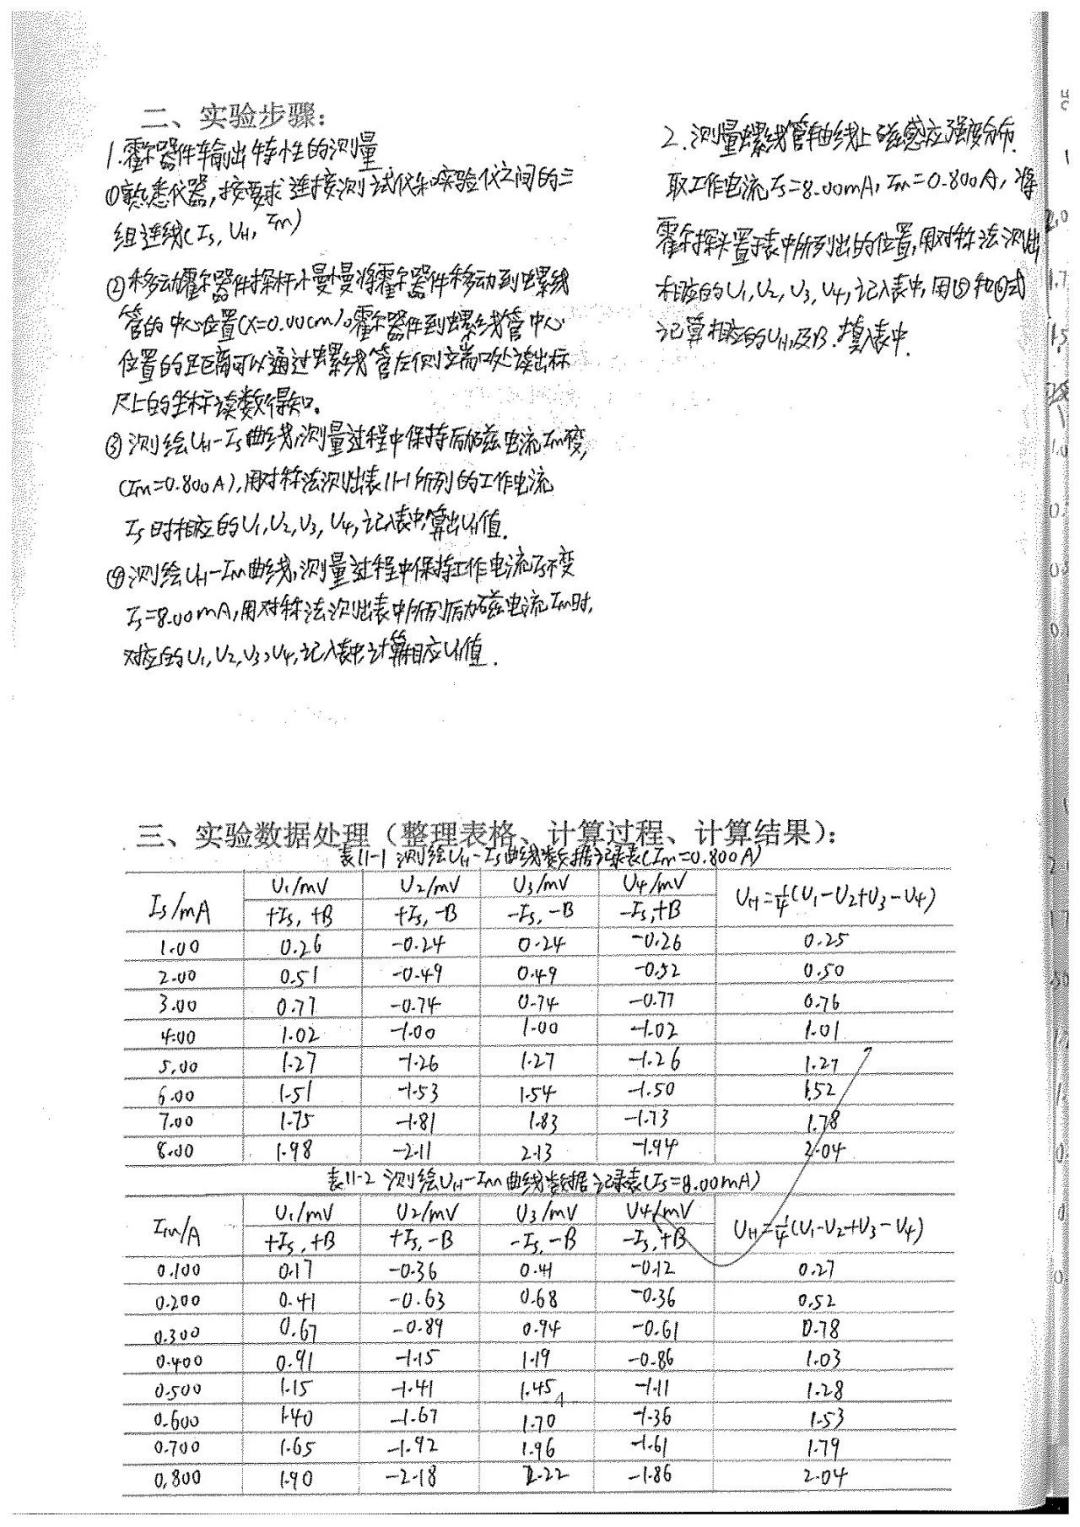 二、实验步骤:
1.霍尔器件输出特性的测量
①熟悉仪器,按要求连接测试仪和实验仪之间的三
组连线(Is, UH, Im)
②移动霍尔器件探杆,慢慢将霍尔器件移动到螺线
管的中心位置(X=0.00cm)。霍尔器件到螺线管中心
位置的距离可以通过螺线管左侧立端口处读出标
尺上的坐标读数得知。
③测绘UH-Is曲线,测量过程中保持励磁电流Im不变,
(Im=0.800A),用对称法测出表11-1所列的工作电流
Is时相应的U1,U2,U3,U4,记入表中,算出UH值.
④测绘UH-Im曲线,测量过程中保持工作电流Is不变
Is=8.00mA,用对称法测出表中所列励磁电流Im时,
对应的U1,U2,U3,U4,记入表中计算相应UH值.
2.测量螺线管轴线上磁感应强度分布.
取工作电流Is=8.00mA,Im=0.800A,将
霍尔探头置于表中所列出的位置,用对称法测出
相应的U1,U2,U3,U4,记入表中,用 和 式
计算相应的UH及B.填入表中.
三、实验数据处理(整理表格、计算过程、计算结果):
表11-1 测绘UH-Is曲线数据记录表(Im=0.800A)
Is/mA U1/mV U2/mV U3/mV U4/mV UH=1/4(U1-U2+U3-U4)
+Is,+B +Is,-B -Is,-B -Is,+B
1.00 0.26 -0.24 0.24 -0.26 0.25
2.00 0.51 -0.49 0.49 -0.52 0.50
3.00 0.77 -0.74 0.74 -0.77 0.76
4.00 1.02 -1.00 1.00 -1.02 1.01
5.00 1.27 -1.26 1.27 -1.26 1.27
6.00 1.51 -1.53 1.54 -1.50 1.52
7.00 1.75 -1.81 1.83 -1.73 1.78
8.00 1.98 -2.11 2.13 -1.94 2.04
表11-2 测绘UH-Im曲线数据记录表(Is=8.00mA)
Im/A U1/mV U2/mV U3/mV U4/mV UH=1/4(U1-U2+U3-U4)
+Is,+B +Is,-B -Is,-B -Is,+B
0.100 0.17 -0.36 0.41 -0.12 0.27
0.200 0.41 -0.63 0.68 -0.36 0.52
0.300 0.67 -0.89 0.94 -0.61 0.78
0.400 0.91 -1.15 1.19 -0.86 1.03
0.500 1.15 -1.41 1.45 -1.11 1.28
4
0.600 1.40 -1.67 1.70 -1.36 1.53
0.700 1.65 -1.92 1.96 -1.61 1.79
0.800 1.90 -2.18 2.22 -1.86 2.04